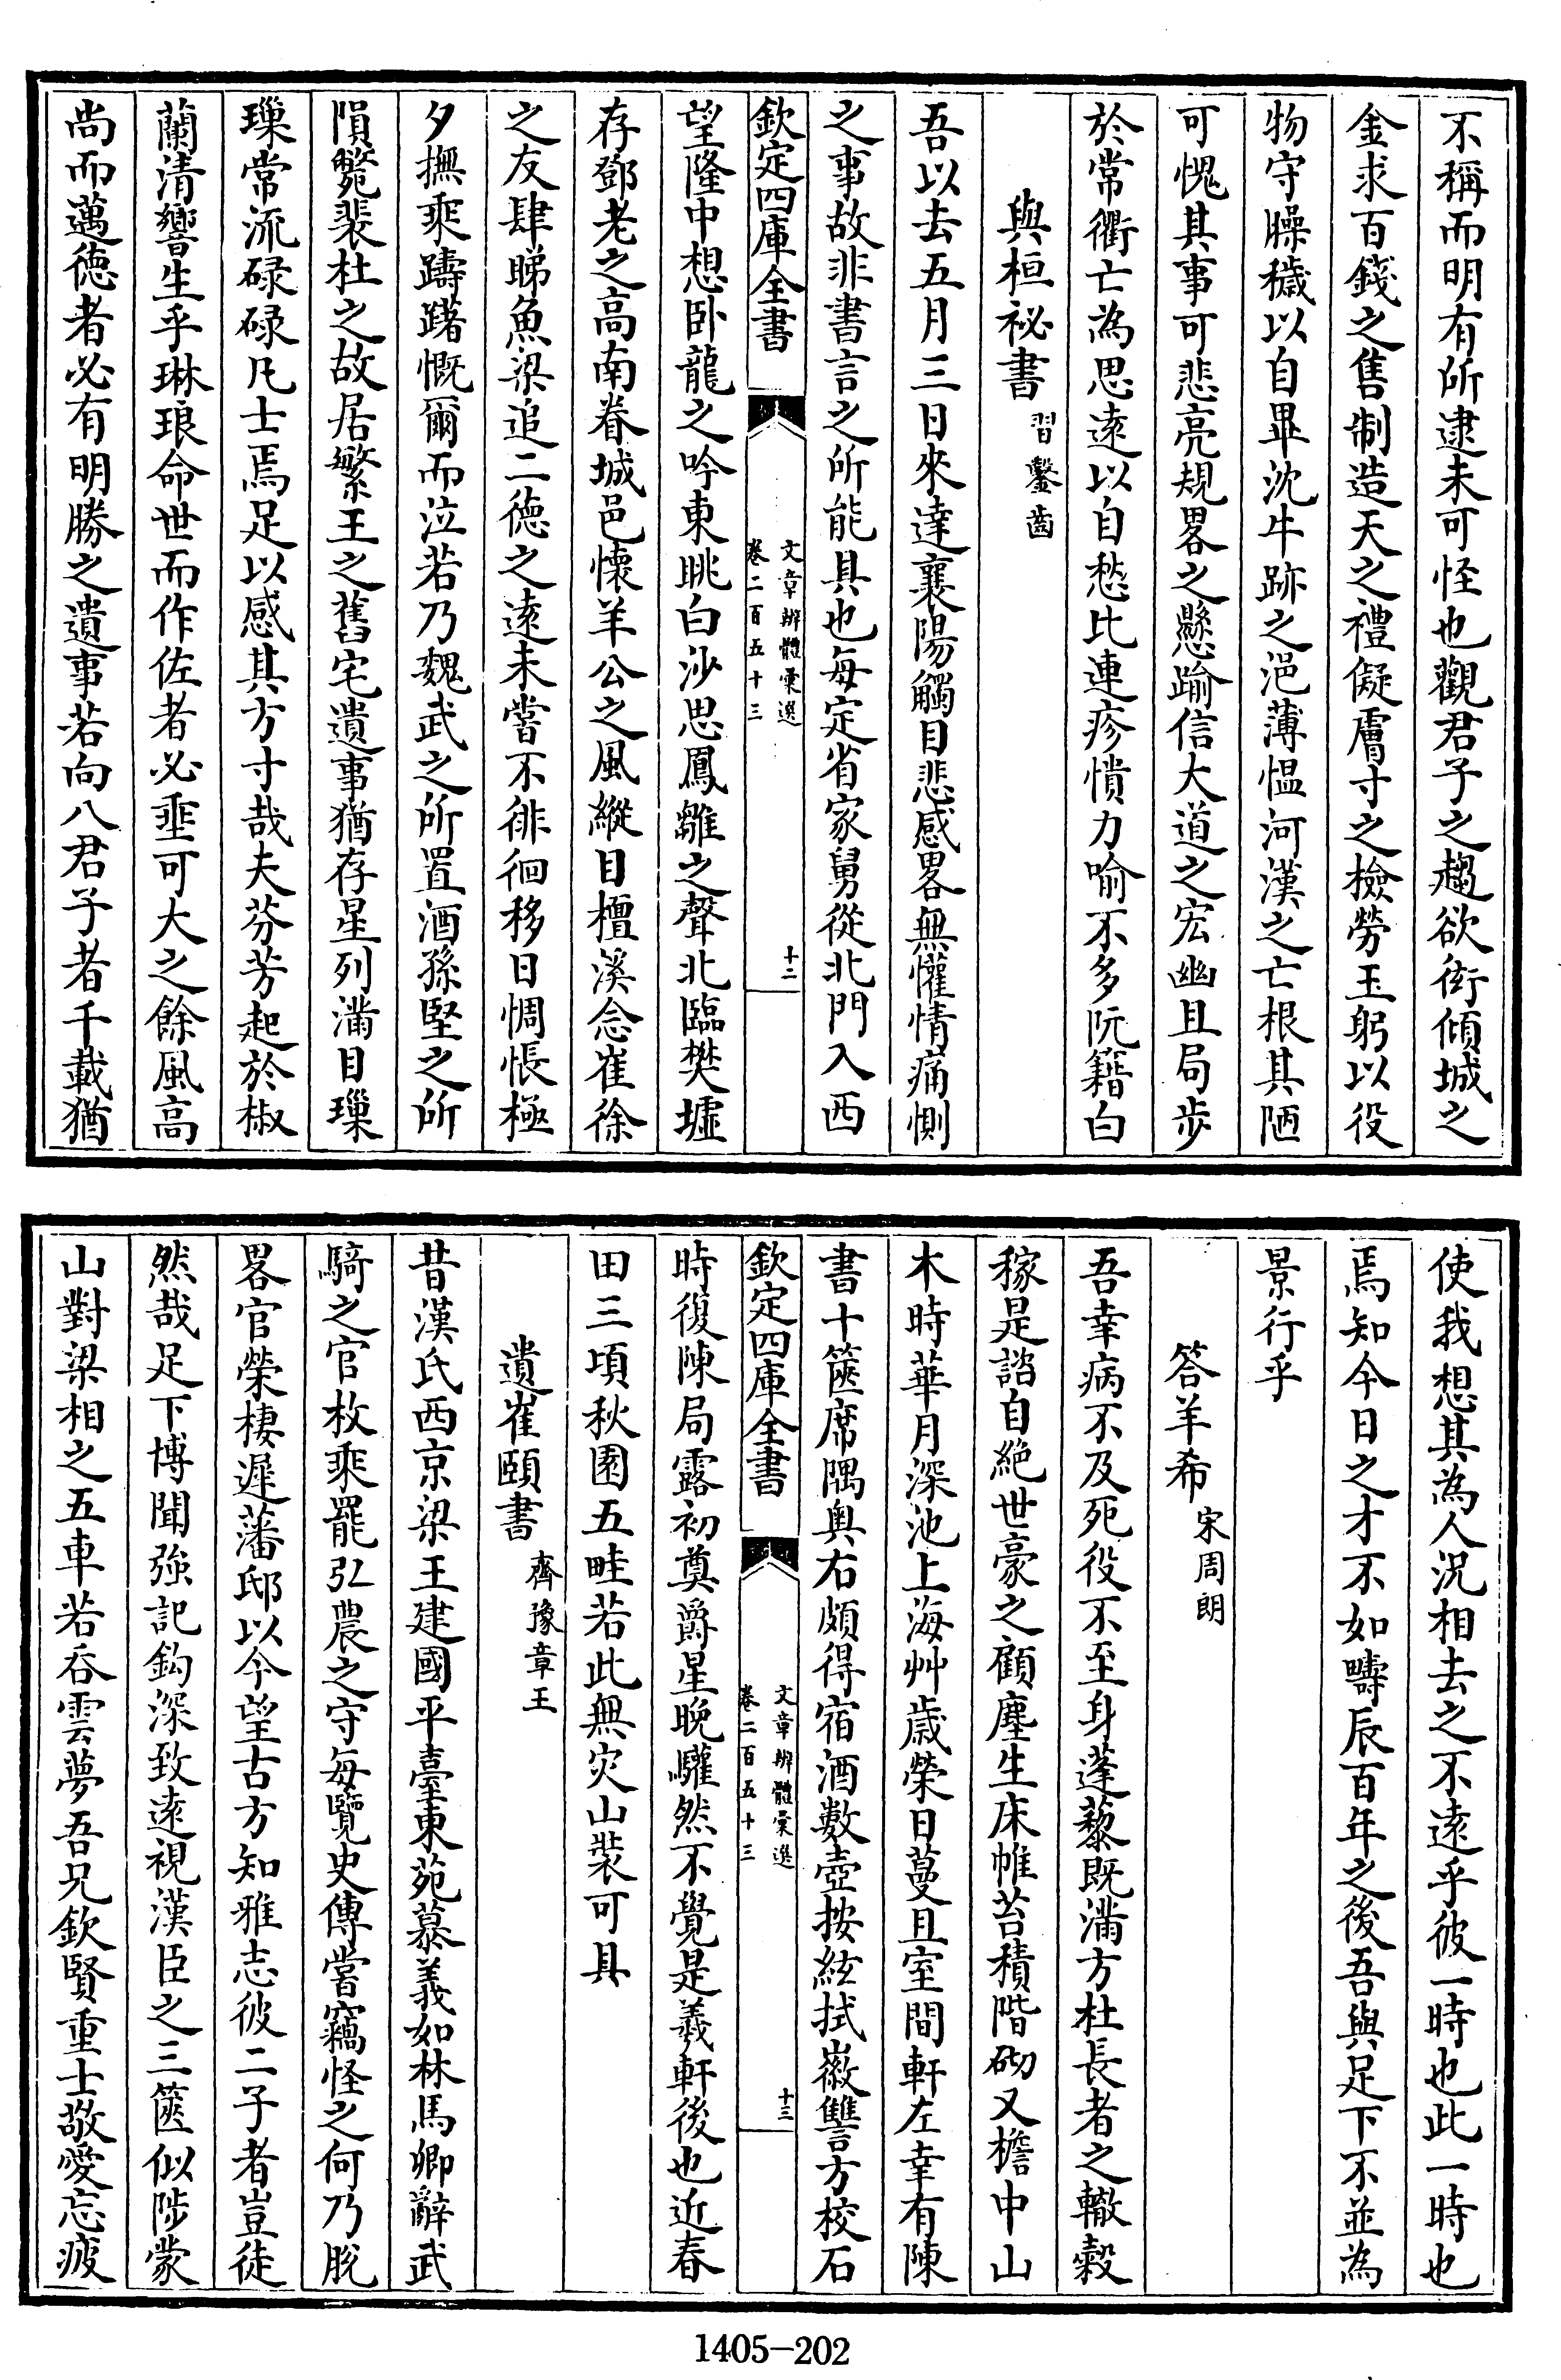 不稱而明有所逮未可怪也觀君子之趨欲衒傾城之
金求百錢之售制造天之禮儗膚寸之檢勞玉躬以役
物守臊穢以自畢沈牛跡之浥薄愠河漢之亡根其陋
可愧其事可悲亮規畧之懸踰信大道之宏幽且局步
於常衢亡為思遠以自愁比連疹憒力喻不多阮籍白
與桓祕書 習鑿齒
吾以去五月三日來達襄陽觸目悲感畧無懽情痛惻
之事故非書言之所能具也每定省家舅從北門入西
欽定四庫全書 文章辨體彙選 卷二百五十三 十二
望隆中想卧龍之吟東眺白沙思鳳雛之聲北臨樊墟
存鄧老之高南眷城邑懷羊公之風縱目檀溪念崔徐
之友肆睇魚梁追二德之遠未嘗不徘徊移日惆悵極
夕撫乘躊躇慨爾而泣若乃魏武之所置酒孫堅之所
隕斃裴杜之故居繁王之舊宅遺事猶存星列滿目璅
璅常流碌碌凡士焉足以感其方寸哉夫芬芳起於椒
蘭清響生乎琳琅命世而作佐者必垂可大之餘風高
尚而邁德者必有明勝之遺事若向八君子者千載猶
使我想其為人況相去之不遠乎彼一時也此一時也
焉知今日之才不如疇辰百年之後吾與足下不並為
景行乎
答羊希 宋周朗
吾幸病不及死役不至身蓬藜既滿方杜長者之轍穀
稼是諮自絶世豪之顧塵生床帷苔積階砌又檐中山
木時華月深池上海艸歲榮日蔓且室間軒左幸有陳
書十篋席隅奥右頗得宿酒數壺按絃拭徽讐方校石
欽定四庫全書 文章辨體彙選 卷二百五十三 十三
時復陳局露初奠爵星晚驩然不覺是羲軒後也近春
田三頃秋園五畦若此無灾山裝可具
遺崔頤書 齊豫章王
昔漢氏西京梁王建國平臺東苑慕義如林馬卿辭武
騎之官枚乘罷弘農之守每覽史傳嘗竊怪之何乃脫
畧官榮棲遲藩邸以今望古方知雅志彼二子者豈徒
然哉足下博聞強記鈎深致遠視漢臣之三篋似陟蒙
山對梁相之五車若吞雲夢吾兄欽賢重士敬愛忘疲
1405-202